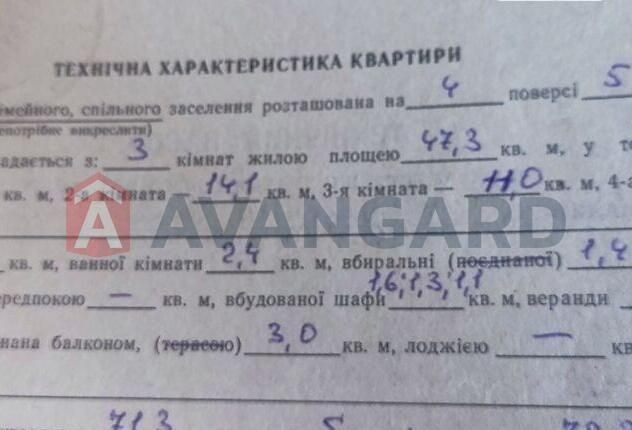 ТЕХНІЧНА ХАРАКТЕРИСТИКА КВАРТИРИ
імейного, спільного заселення розташована на 4 поверсі 5
епотрібне викреслити)
адається з: 3 кімнат жилою площею 47,3 кв. м, у то
кв. м, 2-а кімната — 14,1 кв. м, 3-я кімната — 11,0 кв. м, 4-а
AVANGARD
кв. м, ванної кімнати 2,4 кв. м, вбиральні (поєднаної) 1,4
ередпокою — кв. м, вбудованої шафи 1,6; 1,3; 1,1 кв. м, веранди
нана балконом, (терасою) 3,0 кв. м, лоджією — кв
71,3